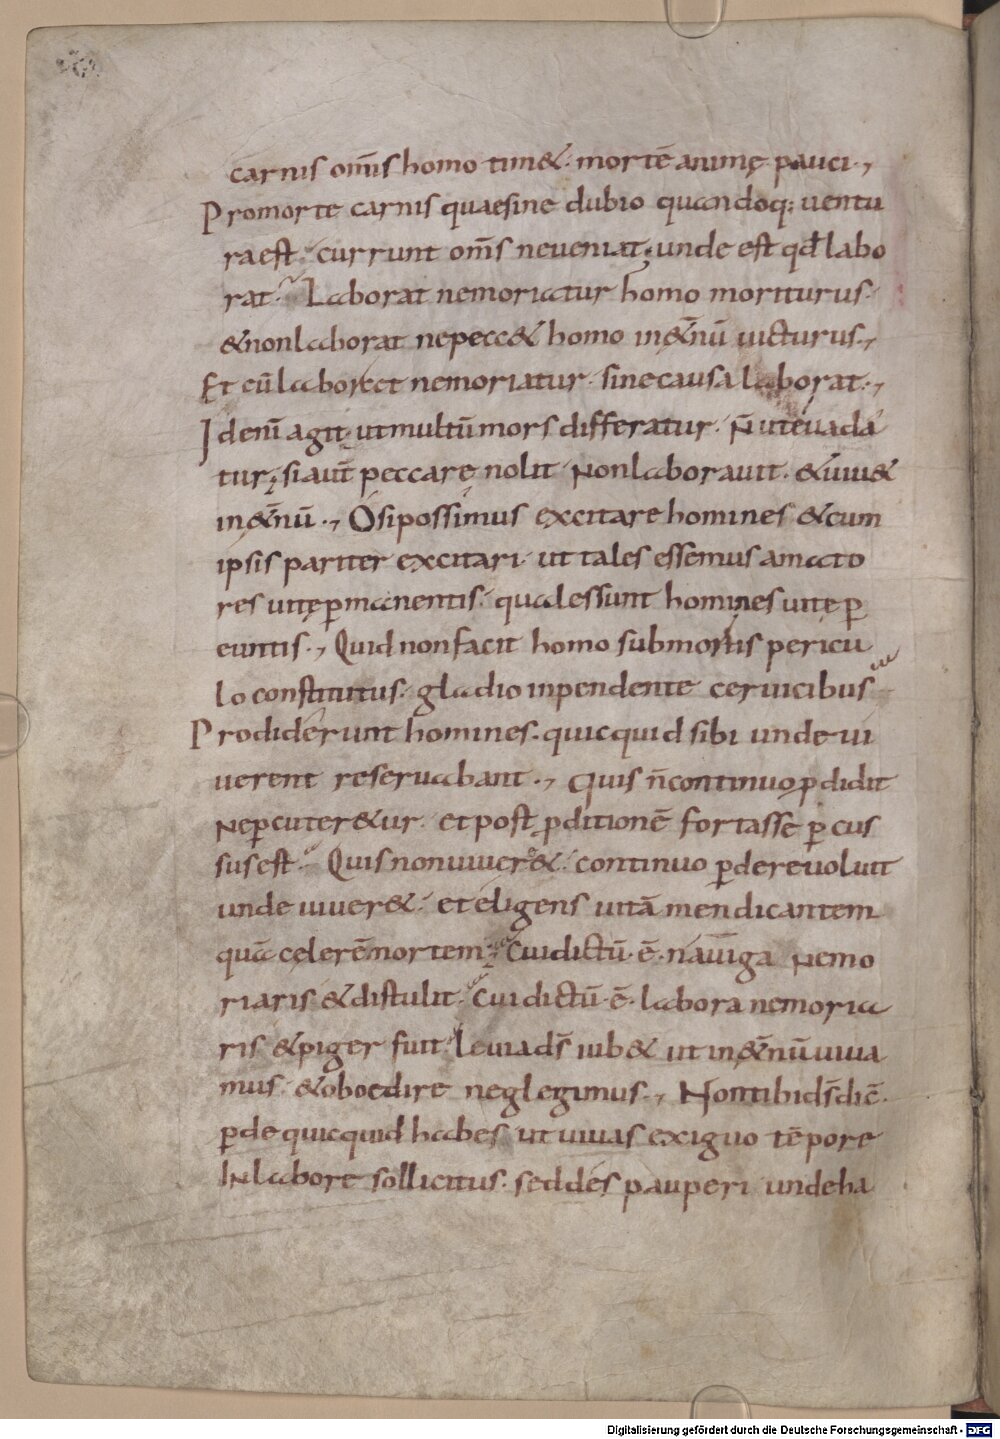 carnis om̅s homo tim&. morte̅ animę pauci.,
Promorte carnis quaesine dubio quandoq; uentu
ra est. currunt om̅s neueniat; unde est qđ labo
rat. Laborat nemoriatur homo moriturus.
&nonlaborat nepecc& homo in&̅nu̅ uicturus.,
Et cu̅ laborat nemoriatur. sinecausa laborat.,
Ideni̅ agit. utmultu̅ mors differatur. N̅ uteuada
tur; siaut̅ peccare nolit Nonlaborauit. &uiu&
in&̅nu̅., Osipossimus excitare homines &cum
ipsis pariter excitari. ut tales essemus amato
res uitę ꝑmanentis. qualessunt homines uitę ꝑ
euntis., Quid nonfacit homo submortis pericu
lo constitutus. gladio inpendente ceruicibus
Prodiderunt homines. quicquid sibi unde ui
uerent reseruabant., Quis n̅ continuo ꝑdidit
Neꝑcuter&ur. et post ꝑditione̅ fortasse ꝑcus
sus est. Quis nonuiuer& continuo ꝑdereuoluit
unde uiuer&. et eligens uita̅ mendicantem
qua̅ celere̅ mortem; Cui dictu̅. e̅. nauiga Nemo
riaris &distulit. Cui dictu̅. e̅. labora nemoria
ris &piger fuit. Leuia ds̅ iub& ut in&̅nu̅ uiua
mus. &oboedire neglegimus., Nontibi ds̅ dic̅.
ꝑde quicquid habes ut uiuas exiguo te̅pore
Inlabore sollicitus. sed des pauperi unde ha
Digitalisierung gefördert durch die Deutsche Forschungsgemeinschaft - DFG